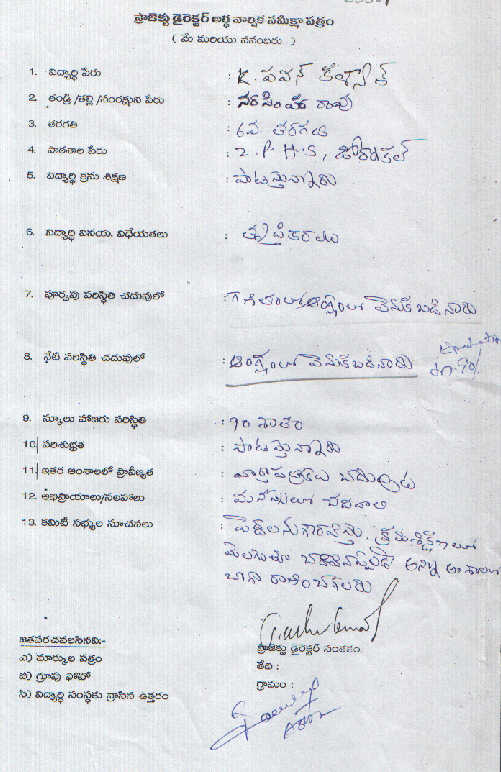 ప్రాజెక్టు డైరెక్టర్ అర్ధ వార్షిక సమీక్షా పత్రం
( మే మరియు నవంబరు )
1. విద్యార్థి పేరు : K. పవన్ కళ్యాణ్
2. తండ్రి /తల్లి /సంరక్షుని పేరు : నరసింహ రావు
3. తరగతి : 6వ తరగతి
4. పాఠశాల పేరు : Z.P.H.S,
5. విద్యార్థి క్రమ శిక్షణ : పాటిస్తున్నారు
6. విద్యార్థి వినయ, విధేయతలు : తృప్తికరము
7. పూర్వపు పరిస్థితి చదువులో : గణితంలో/ఆంగ్లంలో వెనుకబడినారు
8. నేటి పరిస్థితి చదువులో : ఆంగ్లంలో వెనుకబడినారు
9. స్కూలు హాజరు పరిస్థితి : 90 శాతం
10. పరిశుభ్రత : పాటిస్తున్నారు
11. ఇతర అంశాలలో ప్రావీణ్యత :
12. అభిప్రాయాలు/సలహాలు :
13. కమిటీ సభ్యుల సూచనలు : పెద్దలను గౌరవిస్తారు, క్రమశిక్షణలో
అన్ని అంశాలలో
బాగా రాణించగలరు
జతపరచవలసినవి:-
ఎ) మార్కుల పత్రం
బి) గ్రూపు ఫోటో
సి) విద్యార్థి సంస్థకు వ్రాసిన ఉత్తరం
ప్రాజెక్టు డైరెక్టర్ సంతకం.
తేది :
గ్రామం :